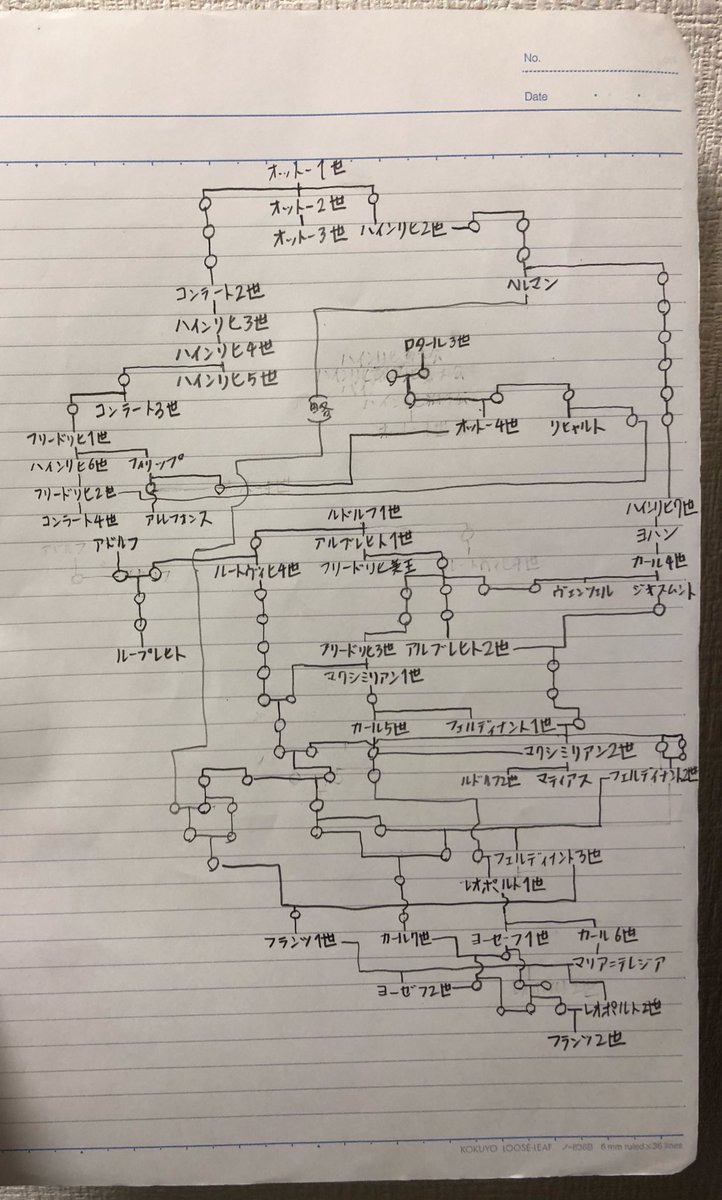 No.
Date
オットー1世
オットー2世
オットー3世
ハインリヒ2世
コンラート2世
ヘルマン
ハインリヒ3世
ハインリヒ4世
ロタール3世
ハインリヒ5世
コンラート3世
略
オットー4世
リヒャルト
フリードリヒ1世
ハインリヒ6世
フィリップ
フリードリヒ2世
コンラート4世
アルフォンス
ハインリヒ7世
ルドルフ1世
ヨハン
アドルフ
アルブレヒト1世
ルートヴィヒ4世
フリードリヒ美王
カール4世
ヴェンツェル
ジギスムント
ループレヒト
フリードリヒ3世
アルブレヒト2世
マクシミリアン1世
カール5世
フェルディナント1世
マクシミリアン2世
ルドルフ2世
マティアス
フェルディナント2世
フェルディナント3世
レオポルト1世
フランツ1世
カール7世
ヨーゼフ1世
カール6世
マリア=テレジア
ヨーゼフ2世
レオポルト2世
フランツ2世
KOKUYO LOOSE-LEAF ノ-836B 6 mm ruled×36 lines